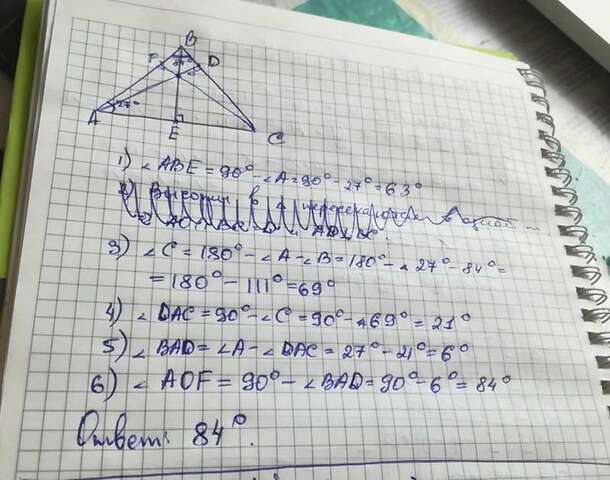 B
F 84° D
O
A 27°
E
C
1) ∠ABE = 90° - ∠A = 90° - 27° = 63°
2)
3) ∠C = 180° - ∠A - ∠B = 180° - 27° - 84° =
= 180° - 111° = 69°
4) ∠DAC = 90° - ∠C = 90° - 69° = 21°
5) ∠BAD = ∠A - ∠DAC = 27° - 21° = 6°
6) ∠AOF = 90° - ∠BAD = 90° - 6° = 84°
Ответ: 84°.